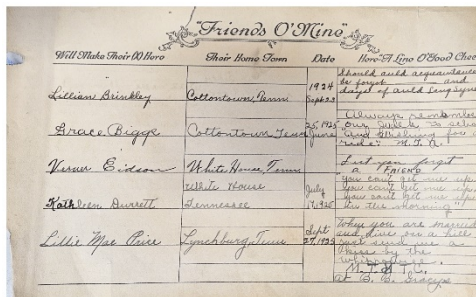 "Friends O'Mine"
Will Make Their XX Here
Their Home Town
Date
Here-A Line O'Good Cheer
Lillian Brinkley
Cottontown, Tenn.
1924
Sept 22
Should auld acquaintance
be forgot and
days of auld lang syne
Grace Biggs
Cottontown Tenn
25, 1925
June
Always remember
our walk to school
and for a
ride? M.T.N.
Verner Eidson
White House, Tenn
Lest you forget
a "FRIEND"
Kathleen Durrett
White House
Tennessee
July
17, 1925
"you can't get me up,
you can't get me up
you can't get me up
in the morning"
Lillie Mae Price
Lynchburg, Tenn
Sept
27, 1925
When you are married
and live on a hill
just send me a
kiss by the
whippoorwill.
M.T.N.T.C.
at B. B. Graces